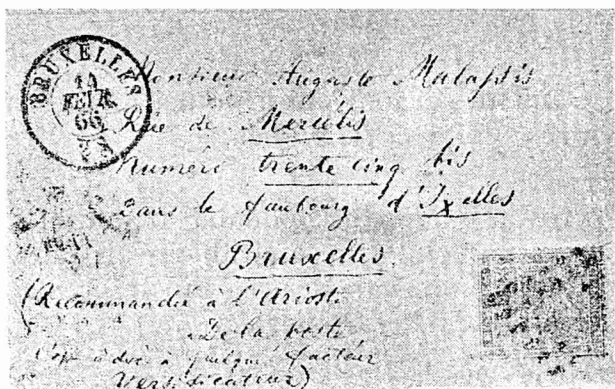 BRUXELLES
14
FEVR.
66
Monsieur Auguste Malassis
Rue de Mercélis
Numéro trente cinq bis
Dans le faubourg d'Ixelles
Bruxelles.
(Recommandée à L'Arioste
De la poste
C'est à dire à quelque facteur
Versificateur)